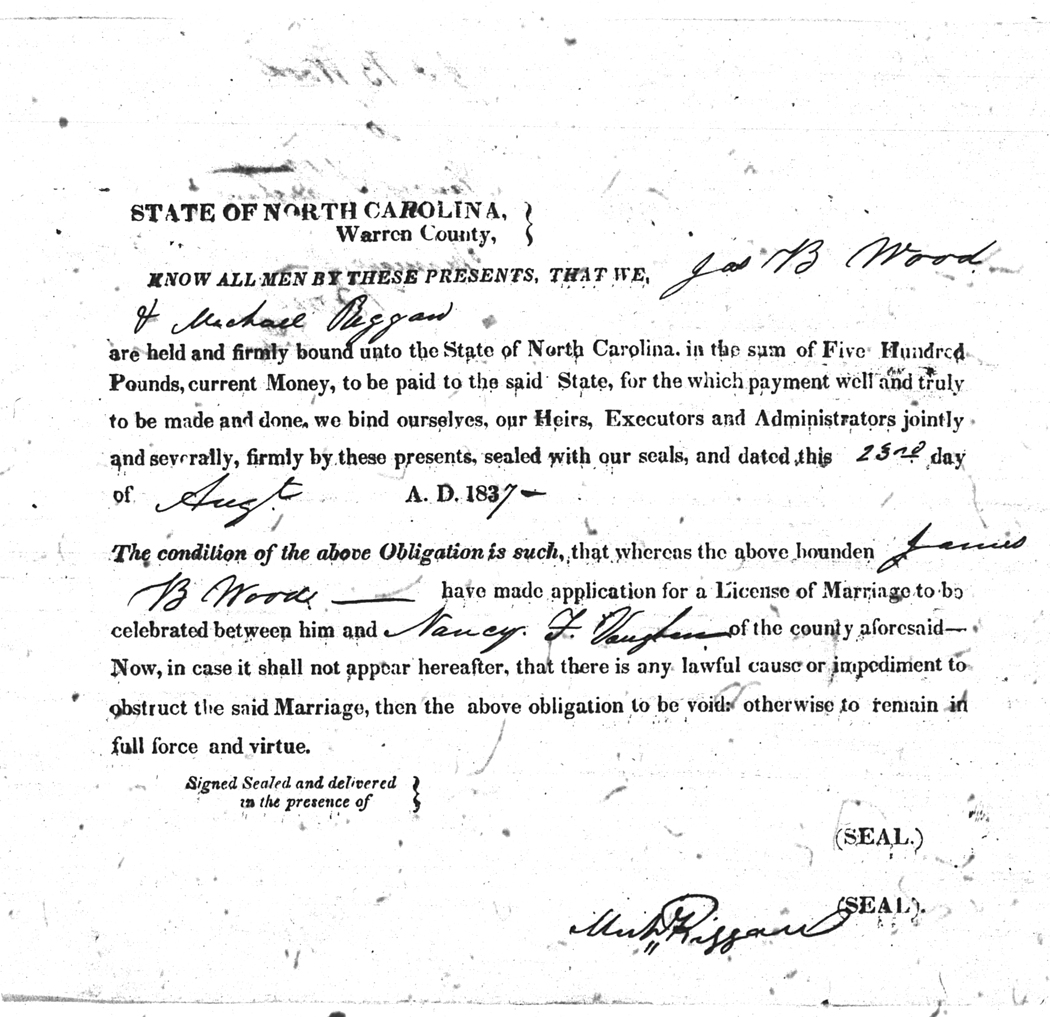 STATE OF NORTH CAROLINA,
Warren County,
KNOW ALL MEN BY THESE PRESENTS, THAT WE, Jas B Wood
& Michael Riggan
are held and firmly bound unto the State of North Carolina. in the sum of Five Hundred
Pounds, current Money, to be paid to the said State, for the which payment well and truly
to be made and done, we bind ourselves, our Heirs, Executors and Administrators jointly
and severally, firmly by these presents, sealed with our seals, and dated this 23rd day
of Augt. A. D. 1837 —
The condition of the above Obligation is such, that whereas the above bounden James
B Wood — have made application for a License of Marriage to be
celebrated between him and Nancy. F. Vaughan of the county aforesaid—
Now, in case it shall not appear hereafter, that there is any lawful cause or impediment to
obstruct the said Marriage, then the above obligation to be void: otherwise to remain in
full force and virtue.
Signed Sealed and delivered
in the presence of
(SEAL.)
(SEAL).
Mich Riggan